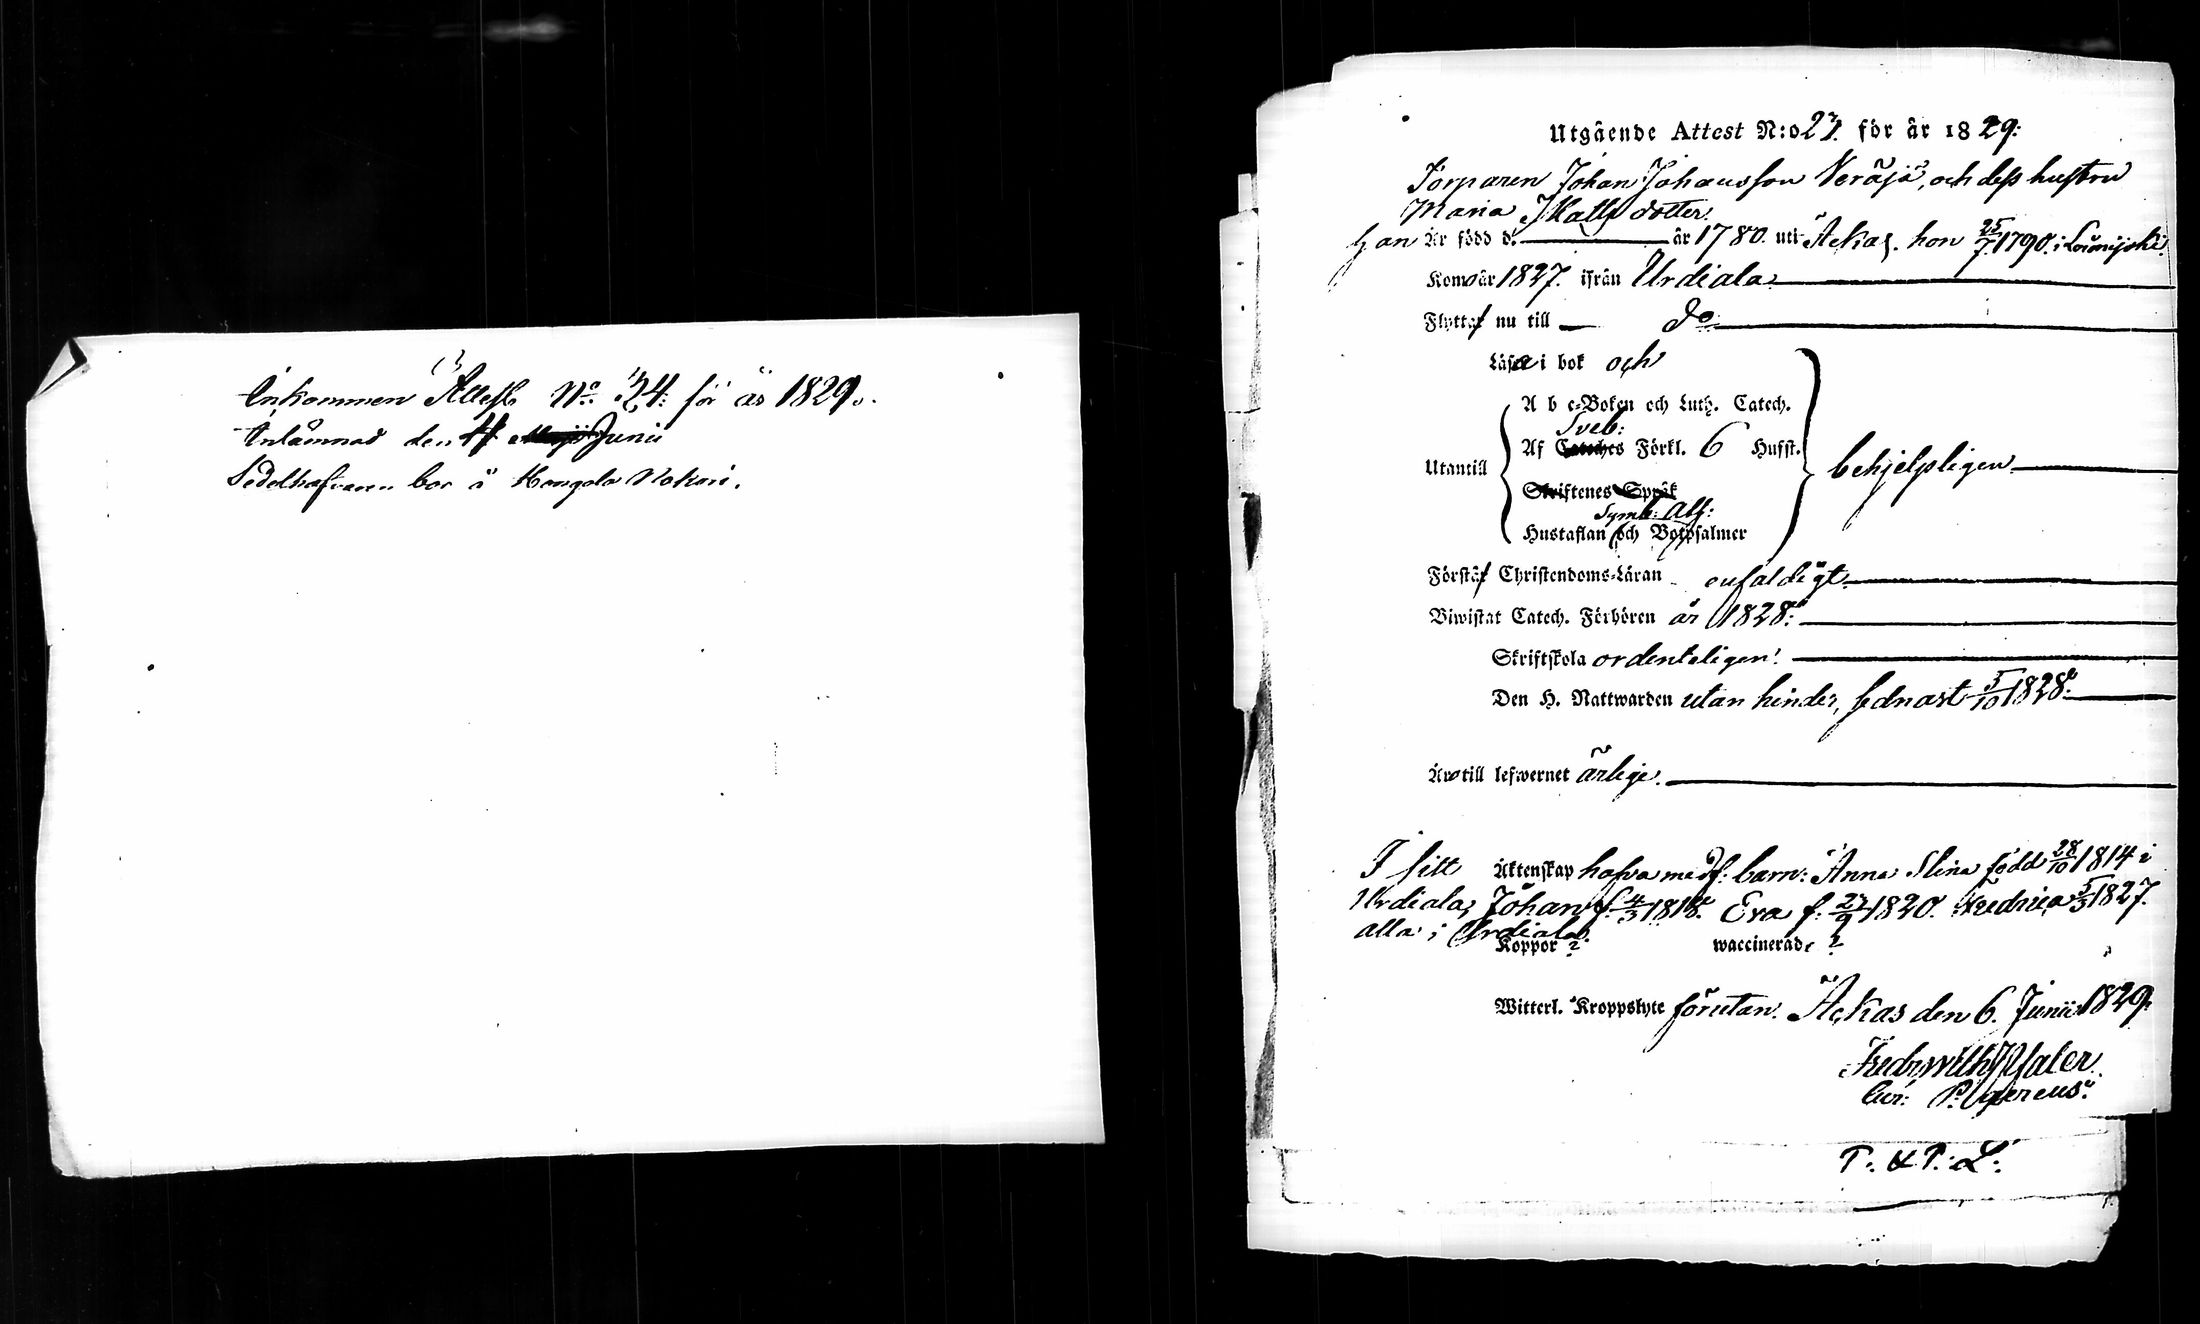 Inkommen Attest No. 34: för år 1829.
Inlämnad den 11 Junii
Sedelhafvaren bor å Kangola Nokari.
Utgående Attest N:o 27. för år 1829:
Torparen Johan Johansson Veräjä, och dess hustru
Maria Matts dotter.
Han Är född d. år 1780. uti Ackas. hon 25/7 1790. i Lounijoki.
Komo år 1827. ifrån Urdiala
Flytta nu till do
Läsa i bok och
A b c-Boken och Luth. Catech.
Sveb:
Af Catches Förkl. 6 Husst.
Utantill behjelpligen
Skriftenes Språk
Symb: Ath:
Hustaflan och Botpsalmer
Förstå Christendoms-Läran enfaldigt
Biwistat Catech. Förhören år 1828:
Skriftskola ordenteligen.
Den H. Nattwarden utan hinder, sednast 5/10 1828.
Äro till lefwernet ärlige.
I sitt Äktenskap hafva medf: barn: Anna Stina född 28/10 1814 i
Urdiala, Johan f. 4/3 1818. Eva f. 27/9 1820. Fredrica 5/3 1827.
alla i Urdiala
Koppor ? waccinerade ?
Witterl. Kroppslyte förutan. Ackas den 6. Junii 1829.
Fredr Wilh
P: & P: L: